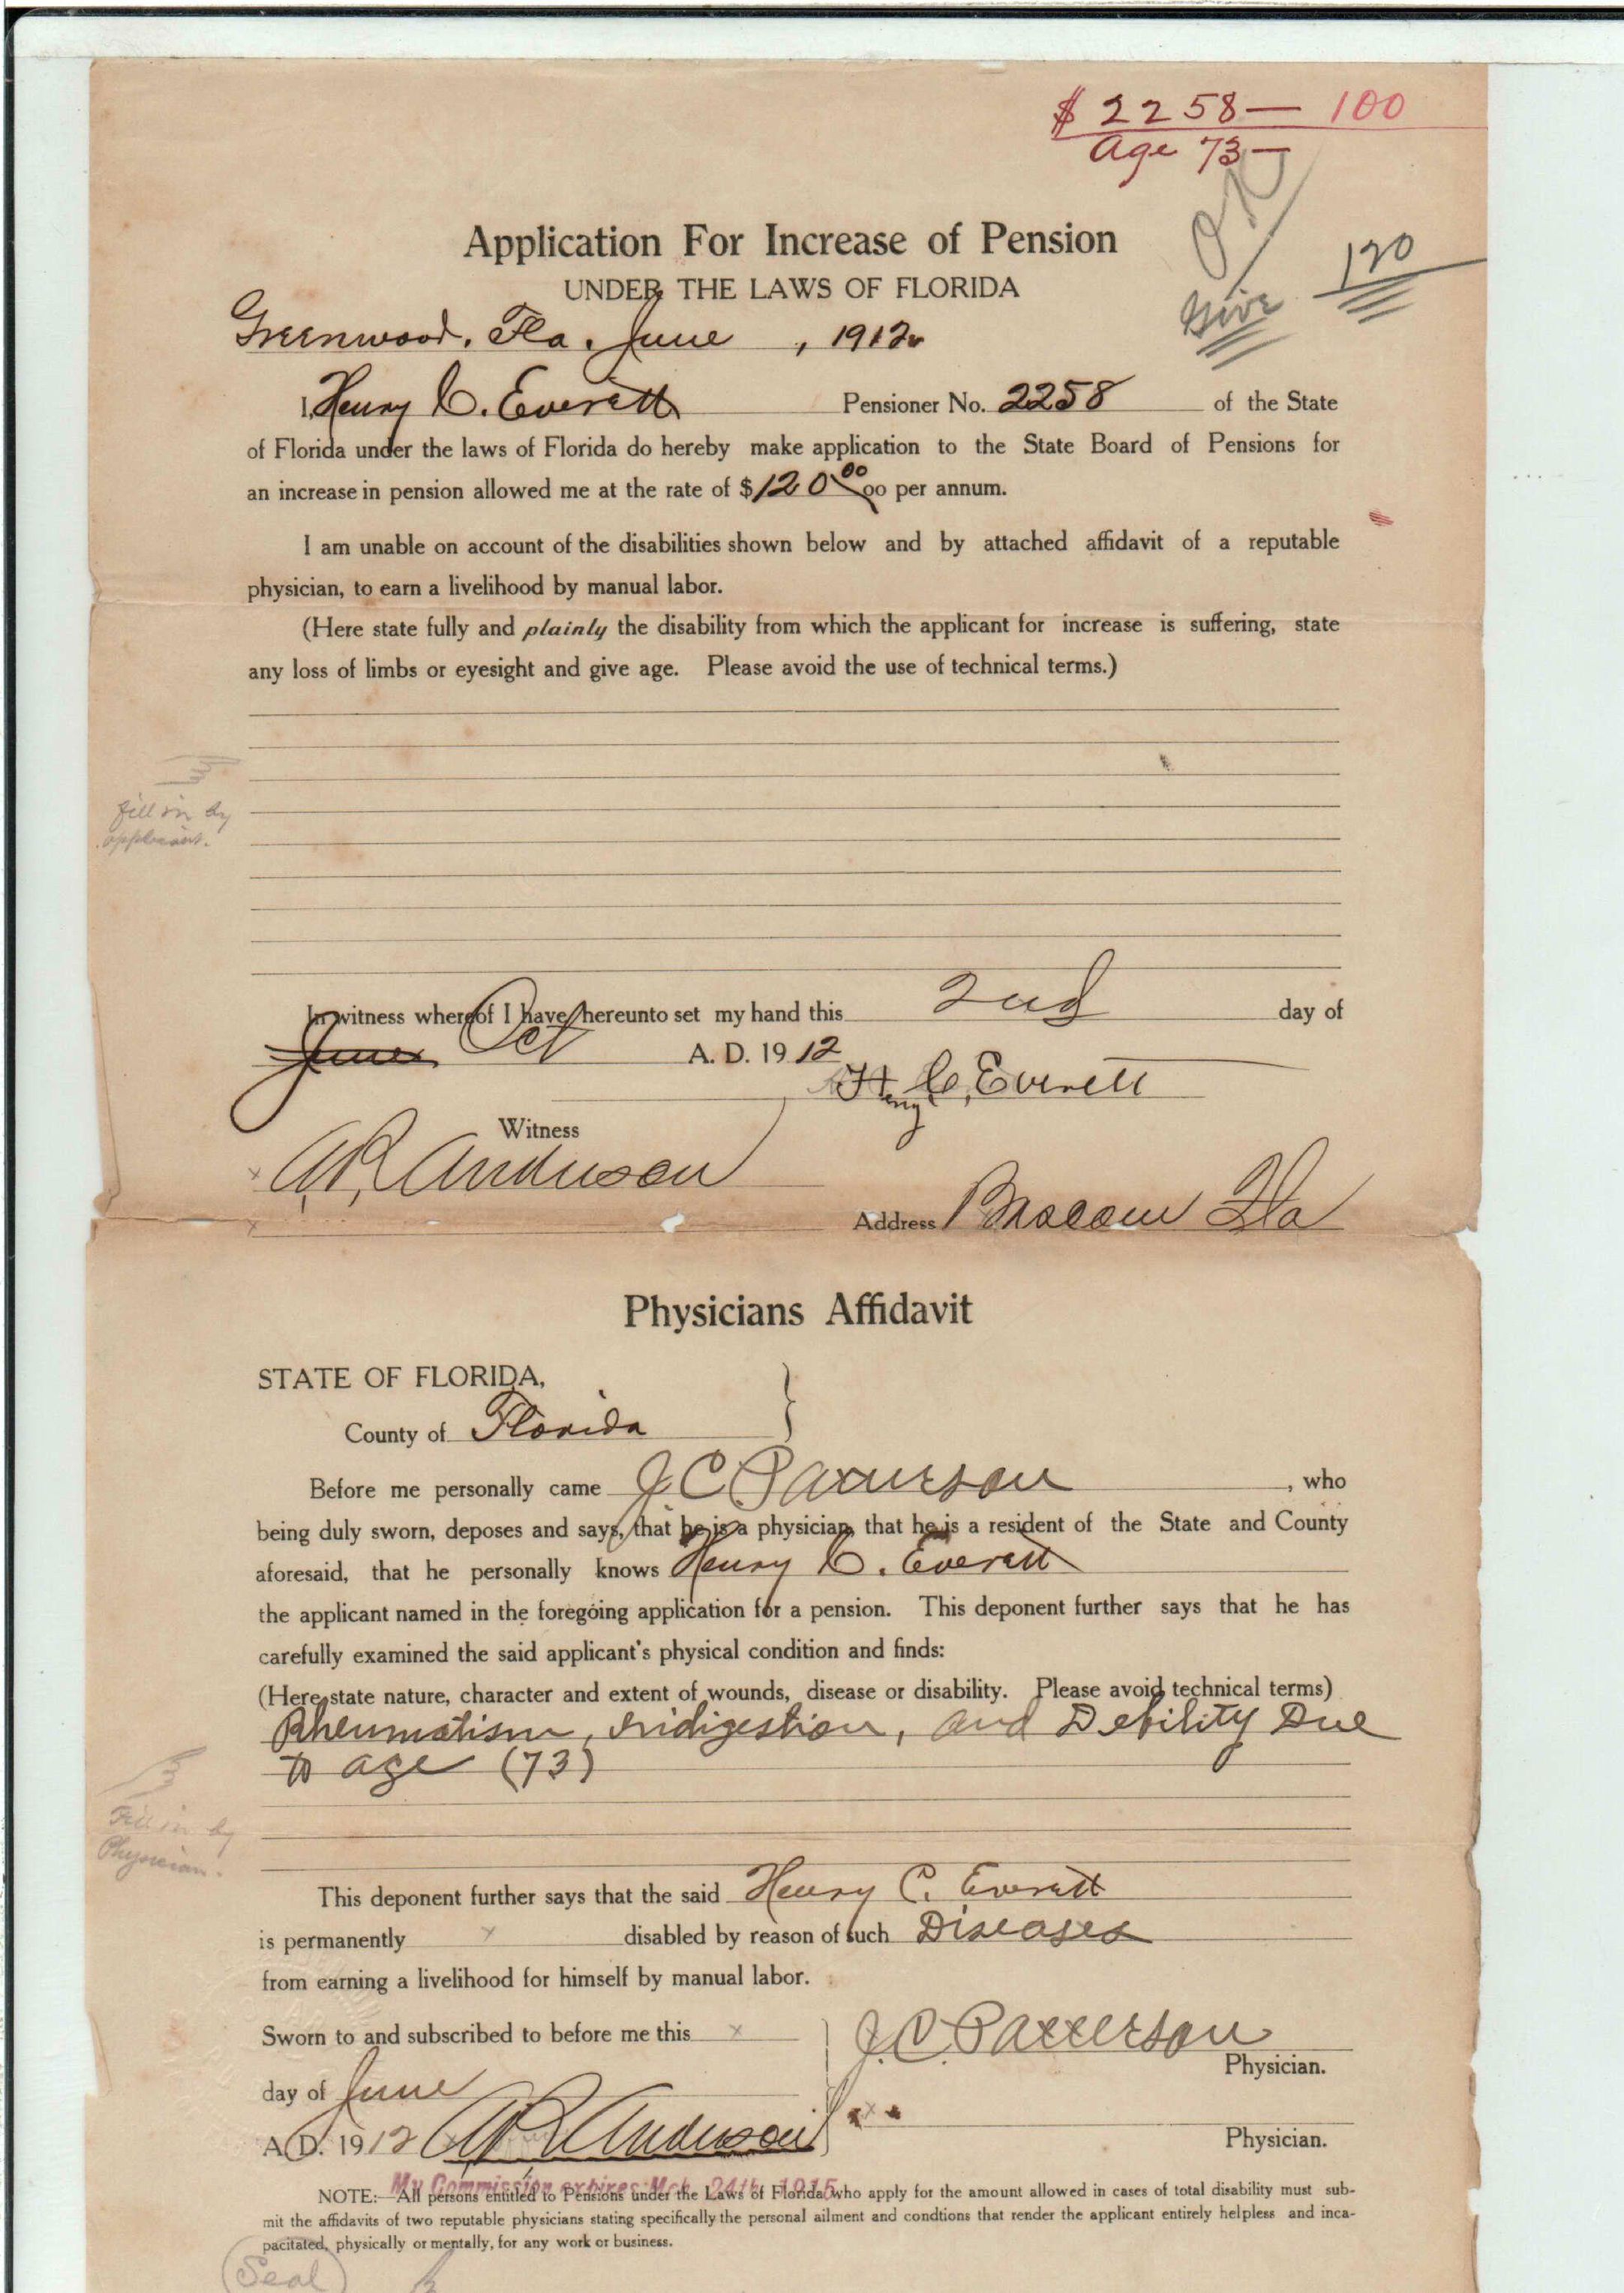 $ 2258— 100
Age 73—
O.K.
Give 120
Application For Increase of Pension
UNDER THE LAWS OF FLORIDA
Greenwood, Fla. June , 1912
I, Henry C. Everett Pensioner No. 2258 of the State
of Florida under the laws of Florida do hereby make application to the State Board of Pensions for
an increase in pension allowed me at the rate of $120 00 00 per annum.
I am unable on account of the disabilities shown below and by attached affidavit of a reputable
physician, to earn a livelihood by manual labor.
(Here state fully and plainly the disability from which the applicant for increase is suffering, state
any loss of limbs or eyesight and give age. Please avoid the use of technical terms.)
fill in by
applicant.
In witness whereof I have hereunto set my hand this 2nd day of
June Oct A. D. 1912
Heny C, Everett
Witness
x A. R. Anderson
x
Address Bascom Fla
Physicians Affidavit
STATE OF FLORIDA,
County of Florida
Before me personally came J. C. Patterson , who
being duly sworn, deposes and says, that he is a physician, that he is a resident of the State and County
aforesaid, that he personally knows Henry C. Everett
the applicant named in the foregoing application for a pension. This deponent further says that he has
carefully examined the said applicant's physical condition and finds:
(Here state nature, character and extent of wounds, disease or disability. Please avoid technical terms)
Rheumatism, indigestion, and Debility Due
to age (73)
Fill in by
Physician.
This deponent further says that the said Henry C. Everett
is permanently x disabled by reason of such Diseases
from earning a livelihood for himself by manual labor.
Sworn to and subscribed to before me this x
J. C. Patterson
Physician.
day of June
A. D. 1912 A. R. Anderson
x
Physician.
My Commission expires Mch. 24th 1915
NOTE:—All persons entitled to Pensions under the Laws of Florida who apply for the amount allowed in cases of total disability must sub-
mit the affidavits of two reputable physicians stating specifically the personal ailment and condtions that render the applicant entirely helpless and inca-
pacitated, physically or mentally, for any work or business.
(Seal)